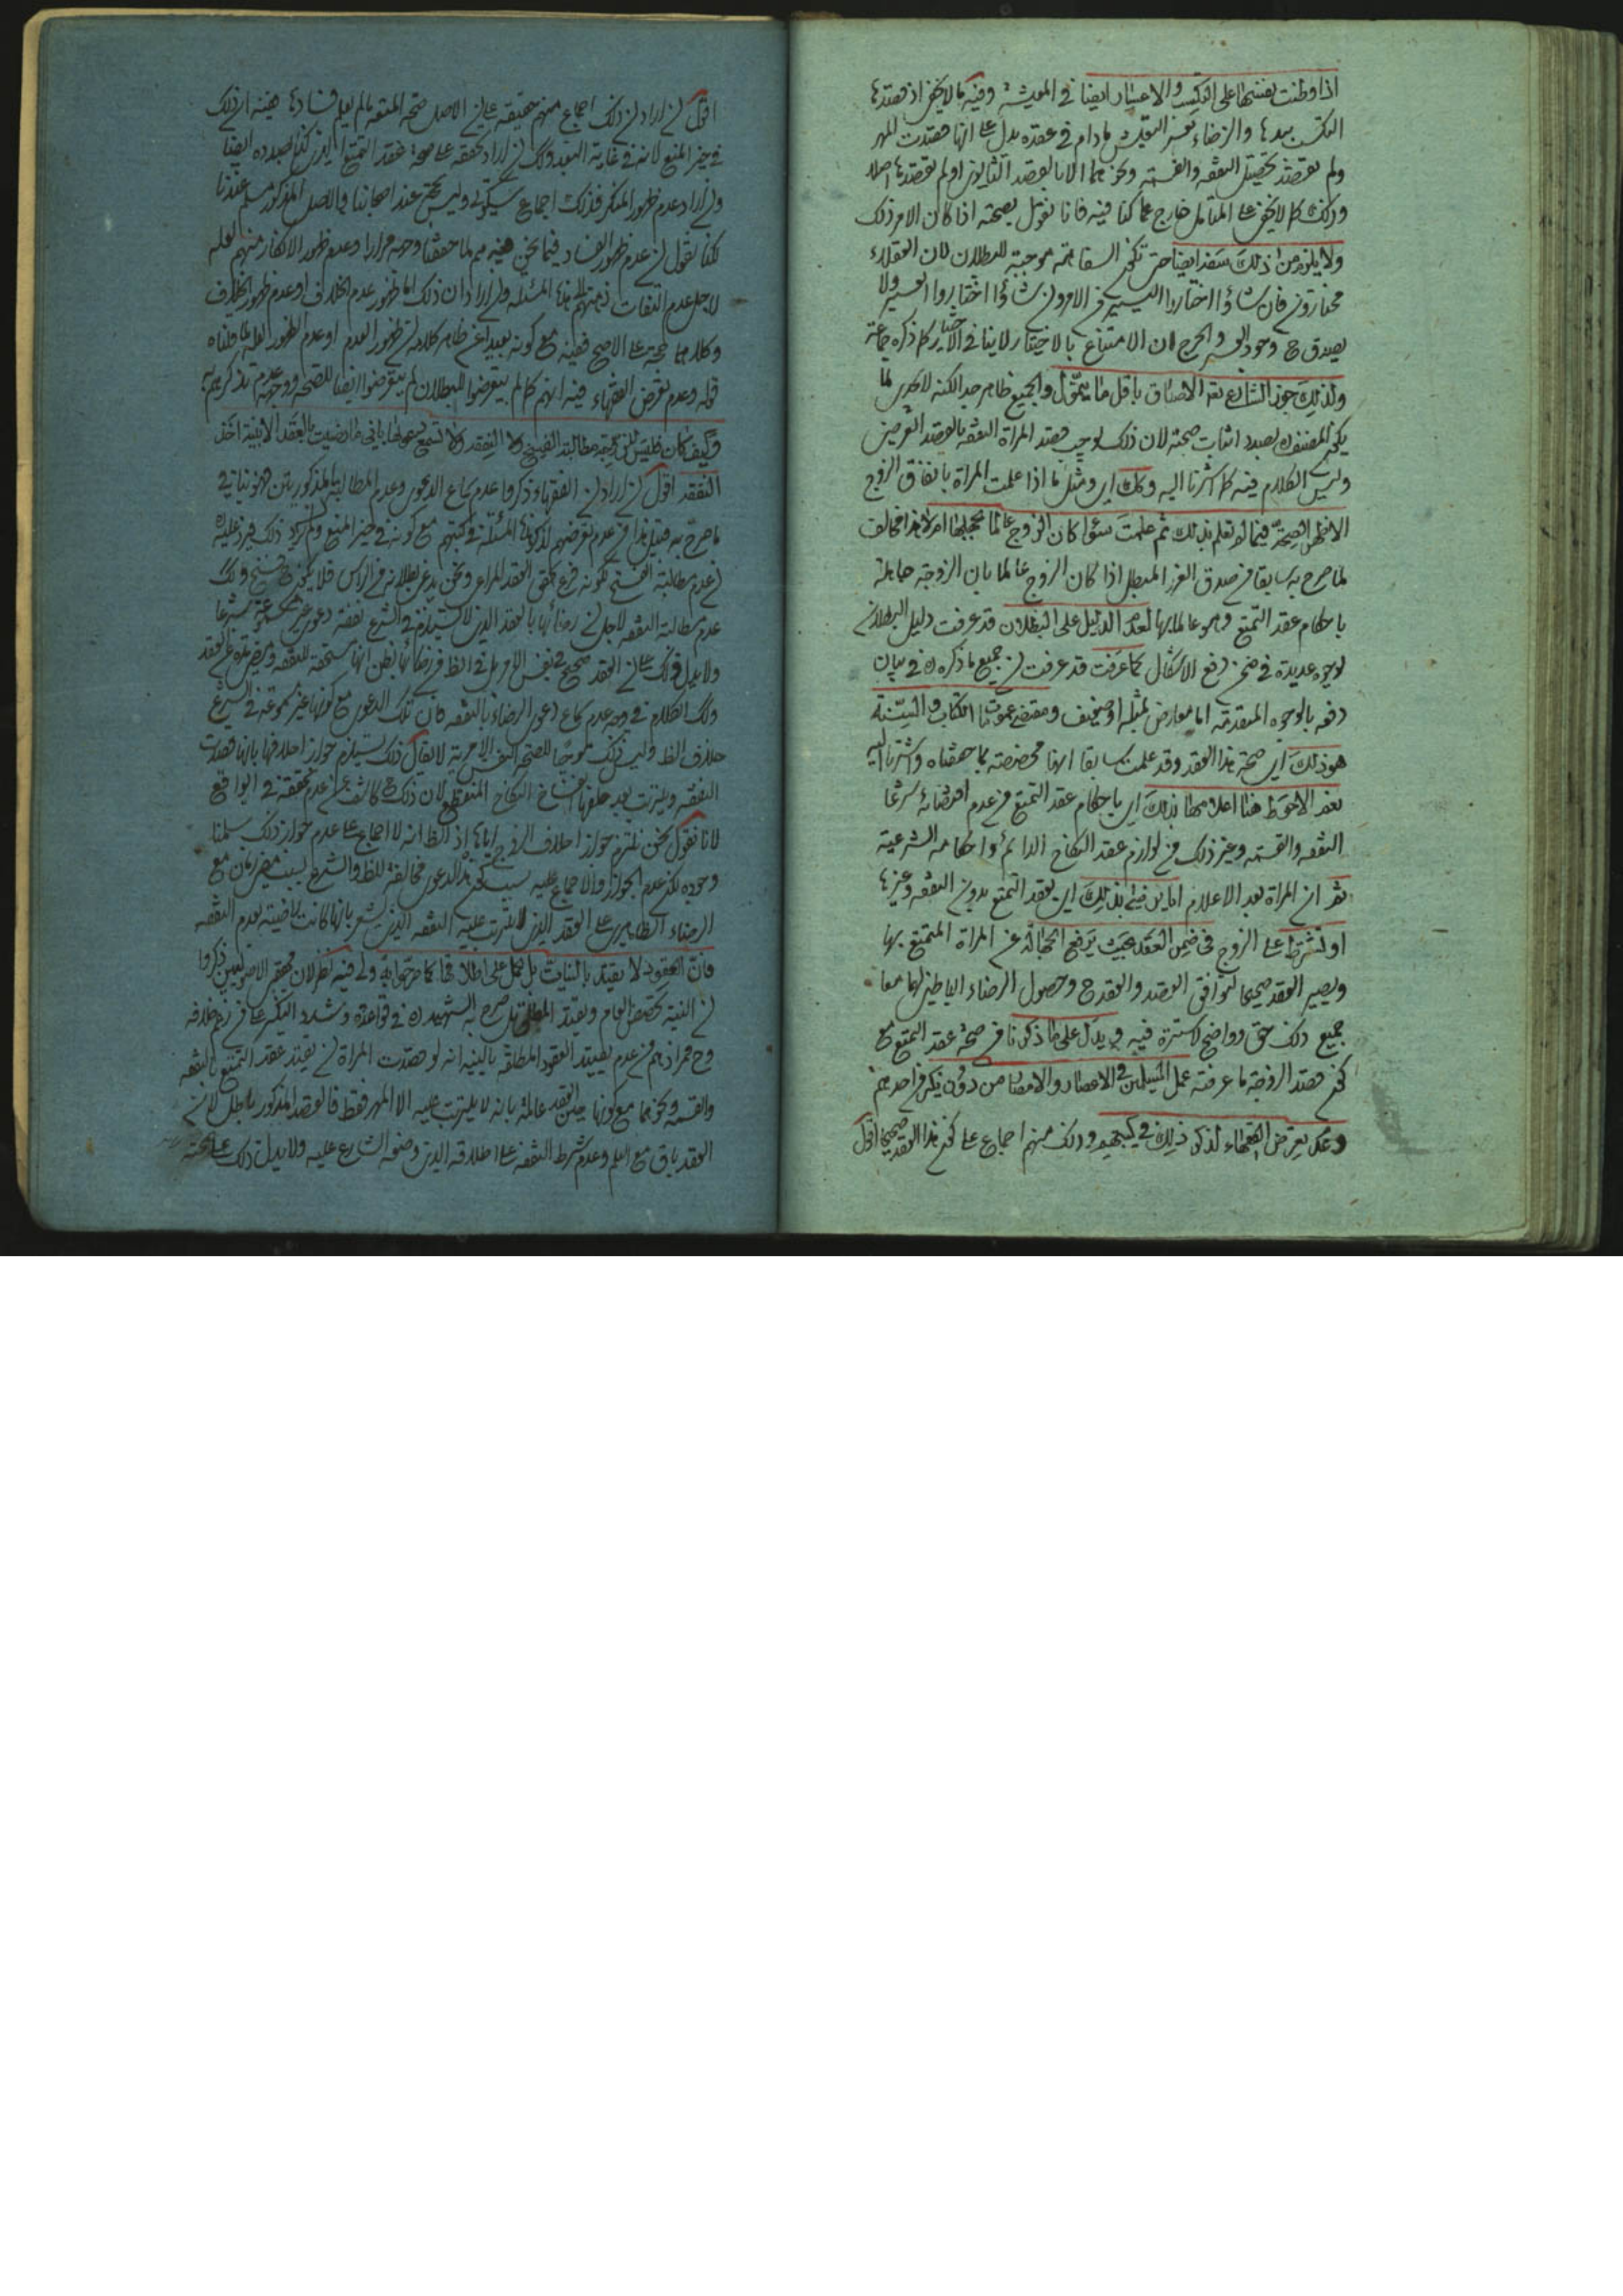 اذا وطنت نفسها على التكسب والاعسار ايضا في المعيشة وفيه ما لا يخفى اذ قصدها
التكسب بيدها والرضاء بعسر ما دام في عقده يدل على انها قصدت المهر
ولم تقصد تحصيل النفقه والقسمه ونحوهما الا بالقصد الثانوى او لم تقصدها اصلا
وذلك كما لا يخفى على المتامل خارج عما كنا فيه فانا نقول بصحته اذا كان الامر كذلك
ولا يلزم من ذلك سفه ايضا حتى تكون السفاهة موجبة للبطلان لان العقلاء
مختارون فان شاؤا اختاروا اليسير من الامر وان شاؤا اختاروا العسير ولا
يصدق ح وجود العسر والحرج لان الامتناع بالاختيار لا ينافى الاختيار كما ذكره جماعة
ولذلك جوز الشارع الاصداق باقل ما يتمول والجميع ظاهر جدا لكنه لا يجدى لما
يكون المصنف ره بصدد اثبات صحته لان ذلك يوجب قصد المراة النفقه بالقصد العرضى
وليس الكلام فيه كما اشرنا اليه وكذا اى ومثل ما اذا علمت المراة باتفاق الزوج
الاظهر الصحة فيما لم تعلم بذلك ثم علمت سواء كان الزوج عالما بجهلها ام لا هذا مخالف
لما صرح به سابقا من صدق الغرر المبطل اذا كان الزوج عالما بان الزوجة جاهلة
باحكام عقد التمتع وهو عالما بها لعدم الدليل على البطلان قد عرفت دليل البطلان
لوجوه عديدة في ضمن دفع الاشكال كما عرفت قد عرفت ان جميع ما ذكره ره في بيان
دفعه بالوجوه المتقدمة اما معارض بمثله او ضعيف ومقتضى عمومات الكتاب والسنة
هو ذلك اى صحة هذا العقد وقد علمت سابقا انها مخصصة بما حققناه واشرنا اليه
نعم الاحوط هنا اعلامها بذلك اى باحكام عقد التمتع من عدم اقتضائه شرعا
النفقه والقسمه وغير ذلك من لوازم عقد النكاح الدائم واحكامه الشرعية
ثم ان المراة بعد الاعلام اما ان رضيت بذلك اى بعقد التمتع بدون النفقه وغيرها
او تشترط على الزوج في ضمن العقد بحيث يرفع الجهالة عن المراة المتمتع بها
ويصير العقد صحيحا لتوافق القصد والعقد ح وحصول الرضاء الباطنى لهما معا
جميع ذلك حق وواضح لا سترة فيه ويدل على ما ذكرنا من صحة عقد التمتع مع
كون قصد الزوجة ما عرفته عمل المسلمين في الاعصار والامصار من دون نكير من احد منهم
وعدم تعرض الفقهاء لذكر ذلك في كتبهم وذلك منهم اجماع على كون هذا العقد صحيحا اقول
اقول ان اراد ان ذلك اجماع منهم حقيقة على ان الاصل صحة المتعه ما لم يعلم فسادها ففيه ان ذلك
في حيز المنع لانه في غاية البعد وكذا ان اراد تحققه على صحة عقد التمتع الذى كنا بصدده ايضا
وان اراد عدم ظهور المنكر فذلك اجماع سكوتى وليس بحجة عند اصحابنا والاصل المذكور مسلم عندنا
لكنا نقول ان عدم ظهور الفساد فيما نحن فيه مم لما حققنا وجهه مرارا وعدم ظهور الانكار منهم لعله
لاجل عدم التفات ذهنهم الى هذه المسئله وان اراد ان ذلك اما ظهور عدم الخلاف او عدم ظهور الخلاف
وكلاهما حجة على الاصح ففيه مع كونه بعيدا عن ظاهر كلامه ان ظهور العدم او عدم الظهور لعله لما قلناه
قوله وعدم تعرض الفقهاء فيه انهم كما لم يتعرضوا للبطلان لم يتعرضوا ايضا للصحه ووجهه عدم تذكرهم به
وكيف كان فليس للزوجة مطالبة الفسخ ولا النفقه ولا تسمع دعواها بانى ما رضيت بالعقد الا بنية اخذ
النفقه اقول ان اراد ان الفقهاء ذكروا عدم سماع الدعوى وعدم المطالبة المذكورتين فهو ينافى
ما صرح به قبيل هذا من عدم تعرضهم لذكر هذه المسئلة في كتبهم مع كونه في حيز المنع وان لم يرد ذلك فيرد عليه
ان عدم مطالبة الفسخ لكونه فرع تحقق العقد المراعى ونحن ندعى بطلانه من الراس فلا يكون ح فسخ وكذلك
عدم مطالبة النفقه لاجل ان رضائها بالعقد الذى لا يستلزم في الشرع نفقة دعوى غير مسموعة شرعا
ولا يدل ذلك على ان العقد صحيح في نفس الامر بل في الظ
وكذا الكلام في وجه عدم سماع دعوى الرضاء بالنفقه فان تلك الدعوى مع كونها غير مسموعة في الشرع
خلاف الظ وليس ذلك موجبا للصحة النفس الامرية لا يقال ذلك يستلزم جواز احلافها بانها قصدت
النفقه ويترتب بعد حلفها انفساخ النكاح المنقطع لان ذلك ح كاشف عن عدم تحققه في الواقع
لانا نقول نحن نلتزم جواز احلاف الزوج اياها اذ الظ انه لا اجماع على عدم جواز ذلك سلمنا
وجوده لكن عدم الجواز والاجماع عليه بسبب كون هذا الدعوى مخالفة للظ والشرع بسبب مضى زمان مع
الرضاء الظاهرى على العقد الذى لا يترتب عليه النفقه الذى يشعر بانها كانت راضية بعدم النفقه
فان العقود لا يقيد بالنيات بل يحمل على اطلاقها كما صرحوا به ولى فيه نظر لان محققى الاصوليين ذكروا
ان النية تخصص العام ويقيد المطلق بل صرح به الشهيد ره في قواعده وشدد النكير على من زعم خلافه
وح فمرادهم من عدم تقييد العقود المطلقة بالنيه انه لو قصدت المراة ان يقيد عقد التمتع بالنفقه
والقسمه ونحوهما مع كونها حين العقد عالمة بانه لا يترتب عليه الا المهر فقط فالقصد المذكور باطل لان
العقد باق مع العلم وعدم شرط النفقه على اطلاقه الذى وضعه الشارع عليه ولا يدل ذلك على صحته